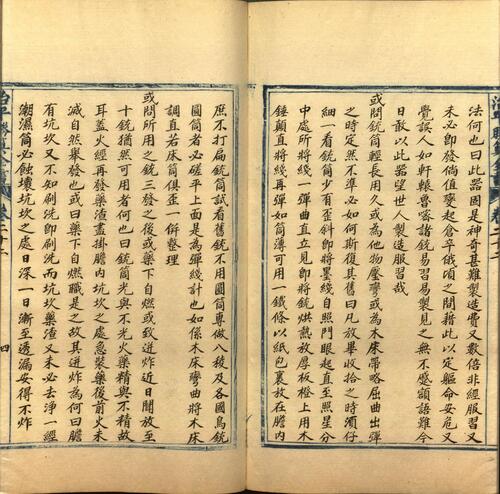 法何也曰此器固是神奇甚難製造費又數倍非經服習又
未必即發倘值變起倉卒俄頃之間藉此以定軀命安危又
覺誤人如軒轅魯密諸銃易習易製見之無不感顧語難今
日敢以此器望世人製造服習哉
或問銃筒輕長用久或為他物壓彎或為木床帶略屈曲出彈
之時定然不準必如何斯復其舊曰凡放畢收拾之時須仔
細一看銃筒少有歪斜即將墨綫自照門眼起直至照星分
中處所將綫一弹曲直立見即將銃烘熱放厚板橙上用木
錘顛直將綫再彈如筒薄可用一鐵條以紙包裹放在膛內
庶不打扁銃筒試看舊銃不用圓筒專做八稜及各國鳥銃
圓筒者必磋平上面是為彈綫計也如係木床彎曲將木床
調直若床筒俱歪一併整理
或問所用之銃三發之後或藥下自燃或致迸炸近日開放至
十銃猶然可用者何也曰銃筒光與不光火藥精與不精故
耳蓋火經再發藥渣盡掛膛內坑坎之處急裝藥後前火未
滅自然舉發也或曰藥下自燃職是之故其迸炸為何曰膛
有坑坎又不如刷洗即刷洗而坑坎藥渣又未必去淨一經
潮濕筒必蝕壞坑坎之處日深一日漸至透漏安得不炸
四